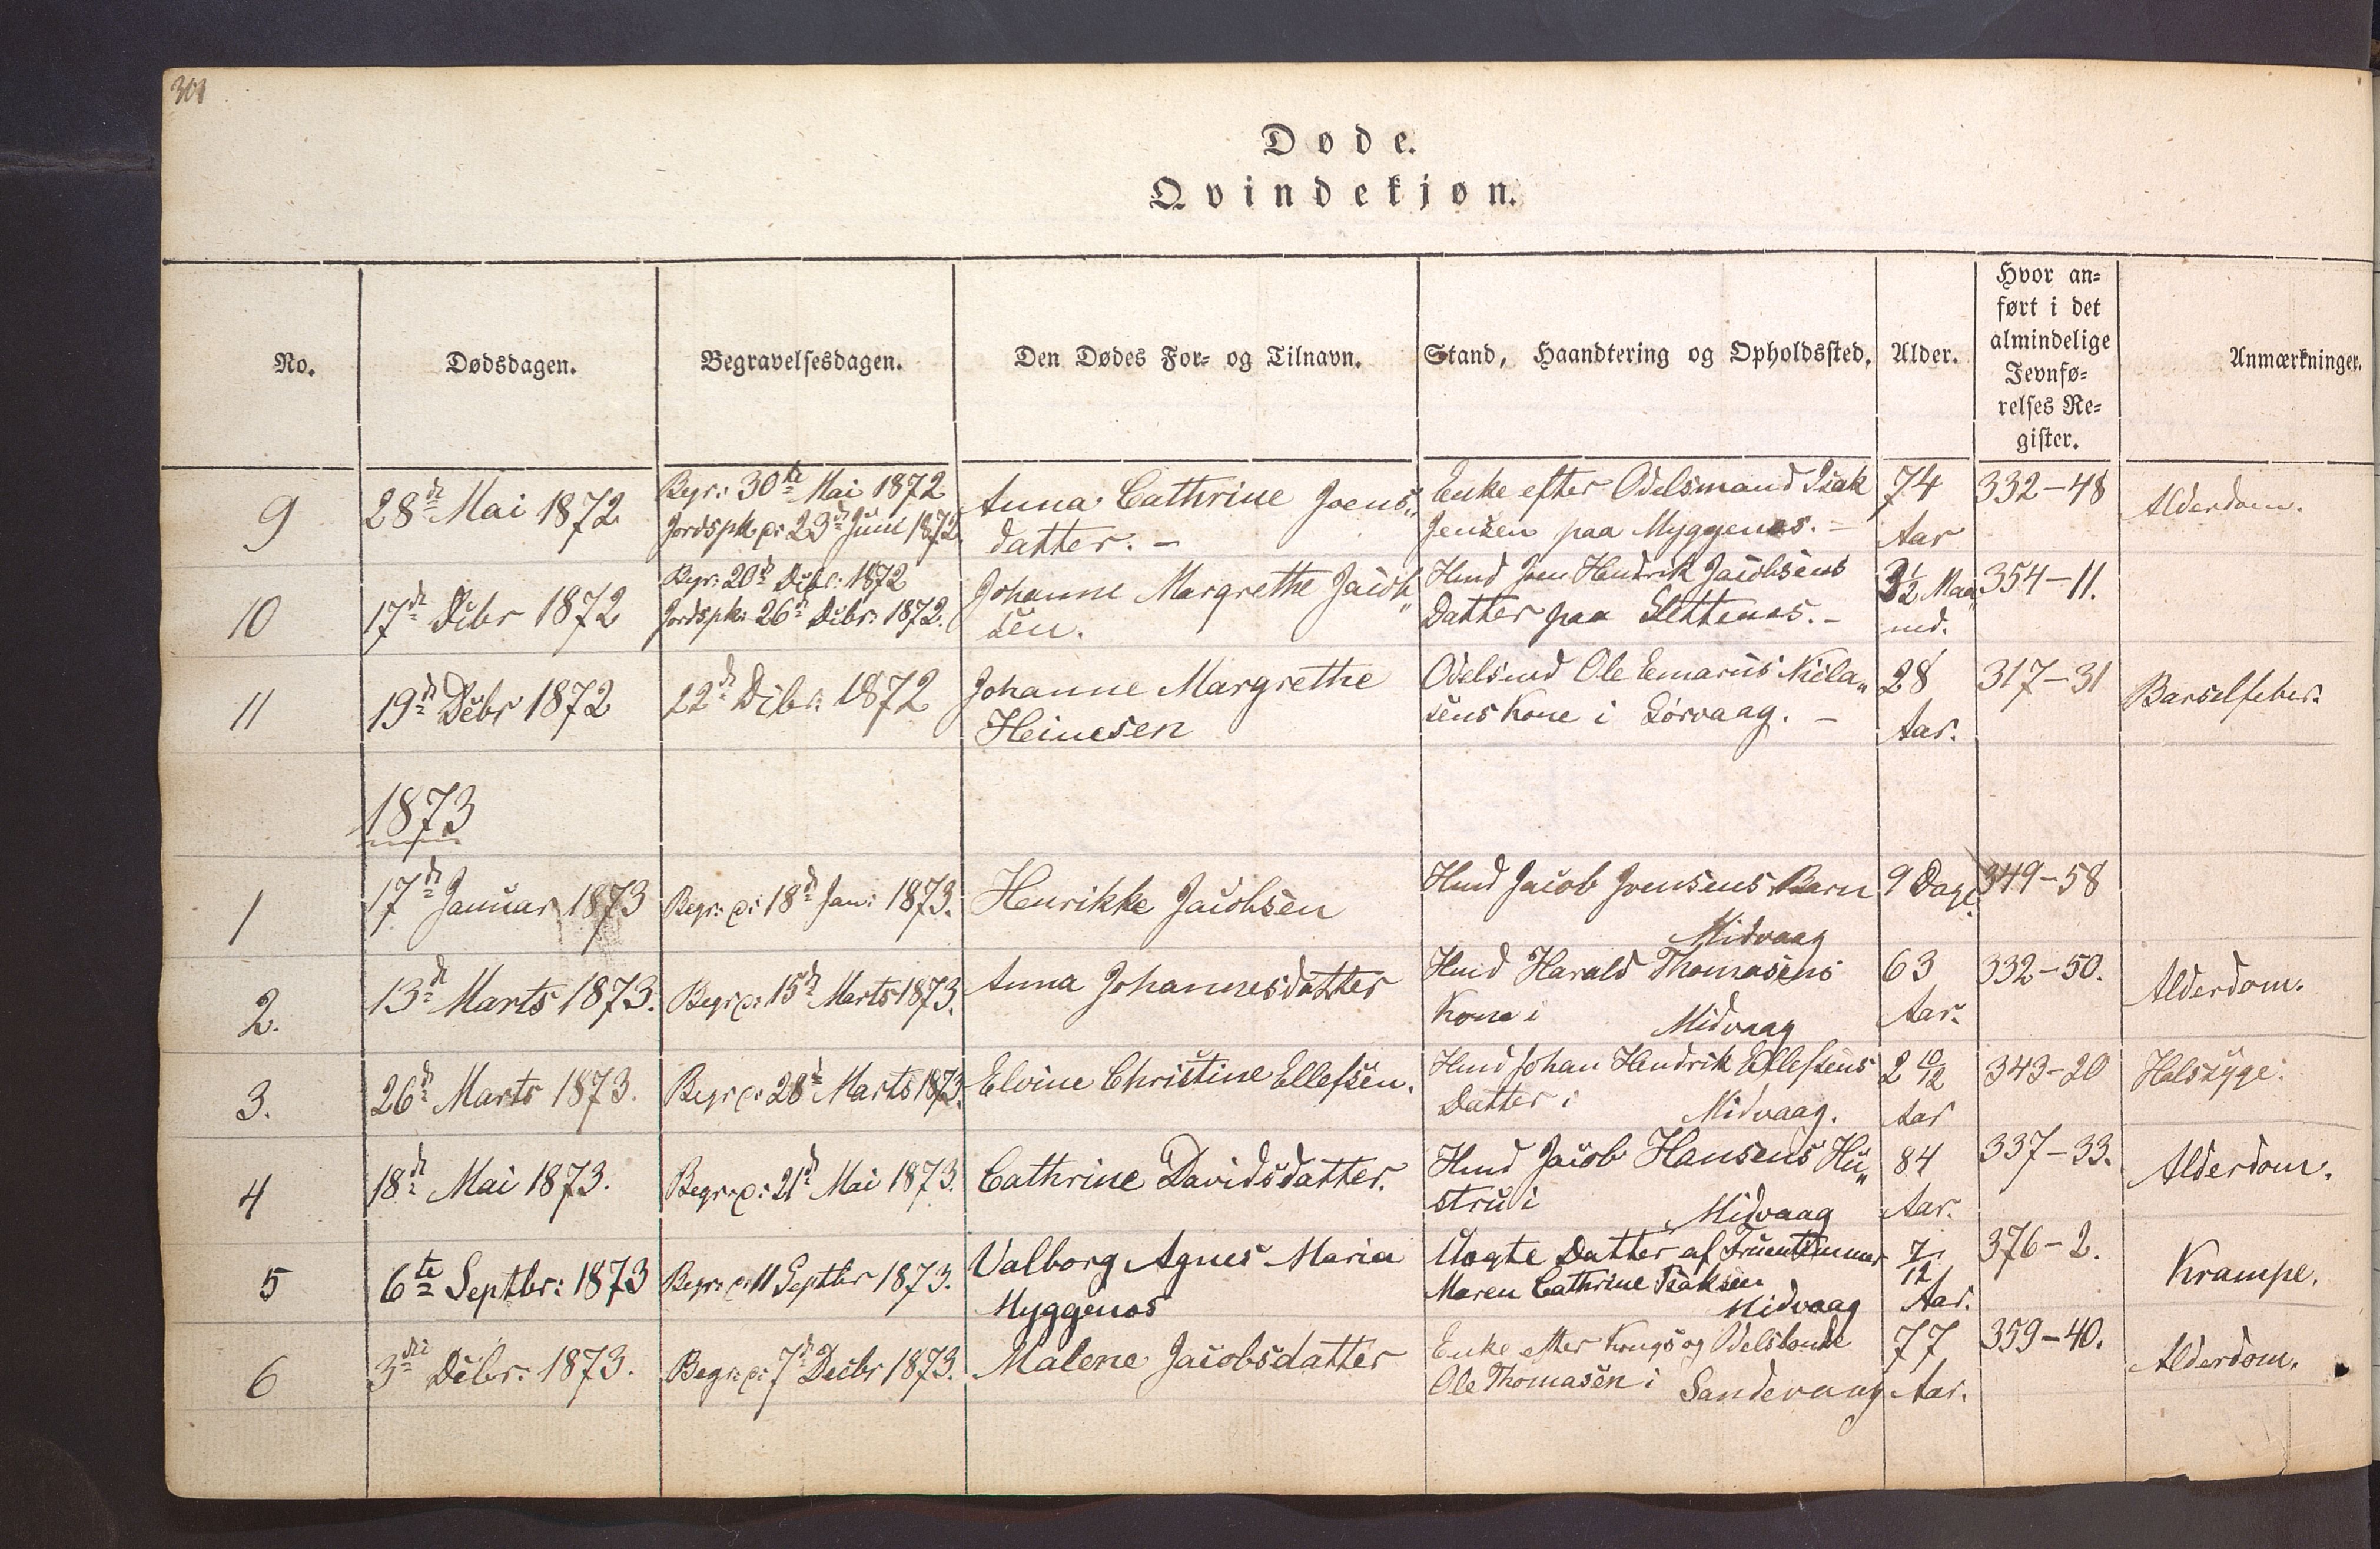 301
Døde.
Qvindekjøn.
No. Dødsdagen. Begravelsesdagen. Den Dødes For- og Tilnavn. Stand, Haandtering og Opholdssted. Alder. Hvor an-
ført i det
almindelige
Jevnfø-
relses Re-
gister. Anmærkninger.
9 28de Mai 1872 Begr: 30te Mai 1872
Jordspk. d: 23de Juni 1872 Anna Cathrine Joens„
datter. – Enke efter Odelsmand Isak
Jensen paa Myggenæs. – 74
Aar 332–48 Alderdom.
10 17de Debr 1872 Begr: 20de Debr: 1872
Jordspk: 26de Debr: 1872. Johanne Margrethe Jacob„
sen. Hmd Joen Hendrik Jacobsens
Datter paa Slettenæs. – 3½ Maa„
ned. 354–11.
11 19de Debr 1872 22de Debr: 1872 Johanne Margrethe
Heinesen Odelsmd Ole Enarius Niela„
sens Kone i Sørvaag. – 28
Aar. 317–31 Barselfeber.
1873
1 17de Januar 1873 Begr: d: 18de Jan: 1873. Henrikke Jacobsen Hmd Jacob Joensens Barn
Midvaag 9 Dage. 349–58
2. 13de Marts 1873. Begr: d: 15de Marts 1873. Anna Johannesdatter Hmd Harald Thomasens
Kone i Midvaag 63
Aar. 332–50. Alderdom.
3. 26de Marts 1873. Begr: d: 28de Marts 1873. Elvine Christine Ellefsen. Hmd Johan Hendrik Ellefsens
Datter i Midvaag. 2 10/12
Aar 343–20 Halssyge.
4 18de Mai 1873. Begr: d: 21de Mai 1873. Cathrine Davidsdatter. Hmd Jacob Hansens Hu„
stru i Midvaag 84
Aar. 337–33. Alderdom.
5 6te Septbr: 1873 Begr: d: 11 Septbr 1873. Valborg Agnes Maria
Myggenæs Uægte Datter af Fruentimmer
Maren Cathrine Isaksen
Midvaag 7/12
Aar. 376–2. Krampe.
6 3die Debr: 1873. Begr: d: 7de Decbr 1873. Malene Jacobsdatter Enke efter Kongs og Odelsbonde
Ole Thomasen i Sandevaag 77
Aar. 359–40. Alderdom.